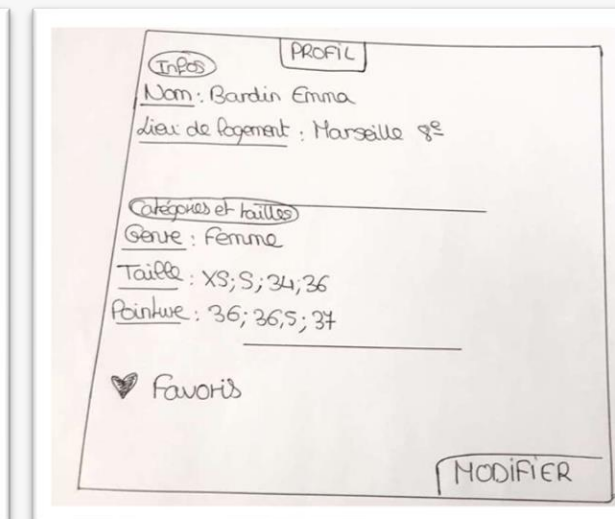 PROFIL
Infos
Nom : Bardin Emma
Lieu de logement : Marseille 8e
Catégories et tailles
Genre : Femme
Taille : XS; S; 34; 36
Pointure : 36; 36,5; 37
Favoris
MODIFIER